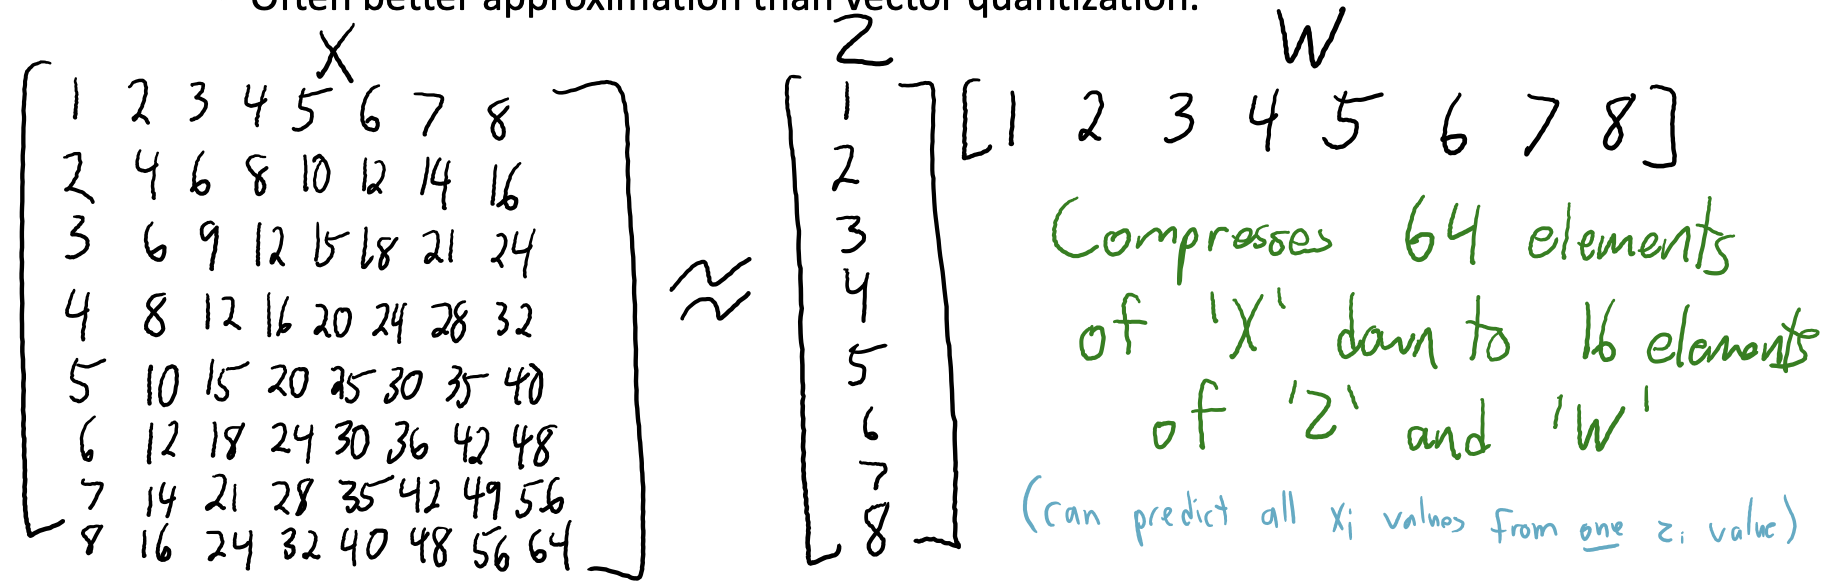 Often better approximation than vector quantization.
X Z W
1 2 3 4 5 6 7 8
2 4 6 8 10 12 14 16
3 6 9 12 15 18 21 24
4 8 12 16 20 24 28 32
5 10 15 20 25 30 35 40
6 12 18 24 30 36 42 48
7 14 21 28 35 42 49 56
8 16 24 32 40 48 56 64
≈
1
2
3
4
5
6
7
8
[1 2 3 4 5 6 7 8]
Compresses 64 elements
of 'X' down to 16 elements
of 'Z' and 'W'
(can predict all xj values from one zi value)